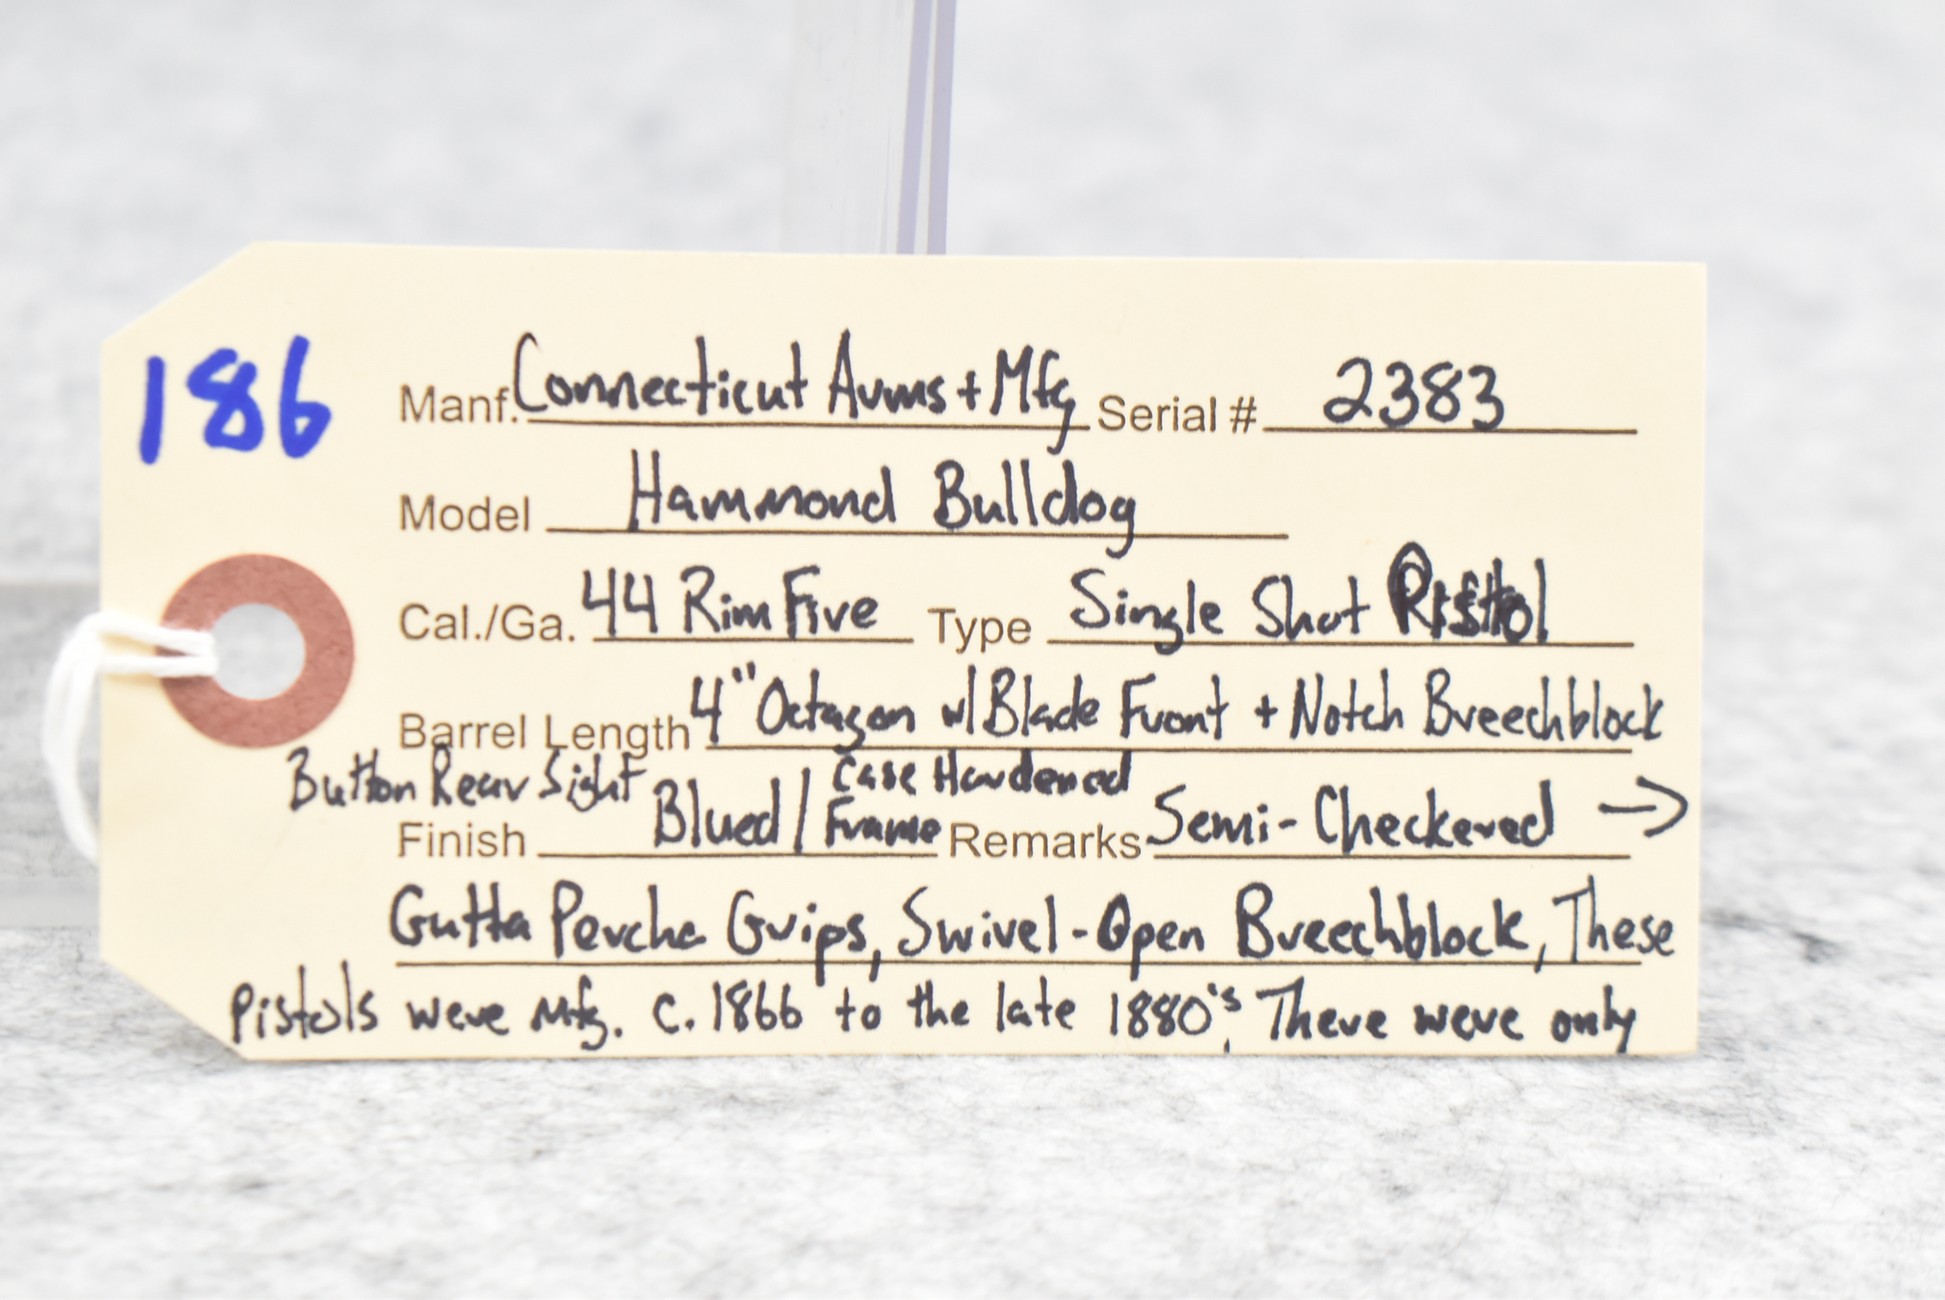 186
Manf. Connecticut Arms + Mfg Serial # 2383
Model Hammond Bulldog
Cal./Ga. 44 Rim Fire Type Single Shot Pistol
Barrel Length 4" Octagon w/ Blade Front + Notch Breechblock
Button Rear Sight
Finish Blued / Case Hardened Frame Remarks Semi-Checkered →
Gutta Percha Grips, Swivel-Open Breechblock, These
Pistols were Mfg. c. 1866 to the late 1880's, There were only